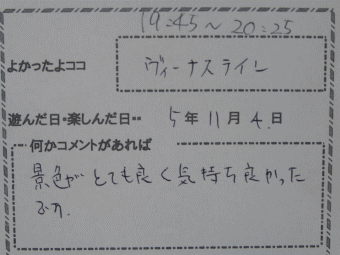 19:45～20:25
よかったよココ ヴィーナスライン
遊んだ日・楽しんだ日・・ 5年11月4日
何かコメントがあれば
景色がとても良く気持ち良かった